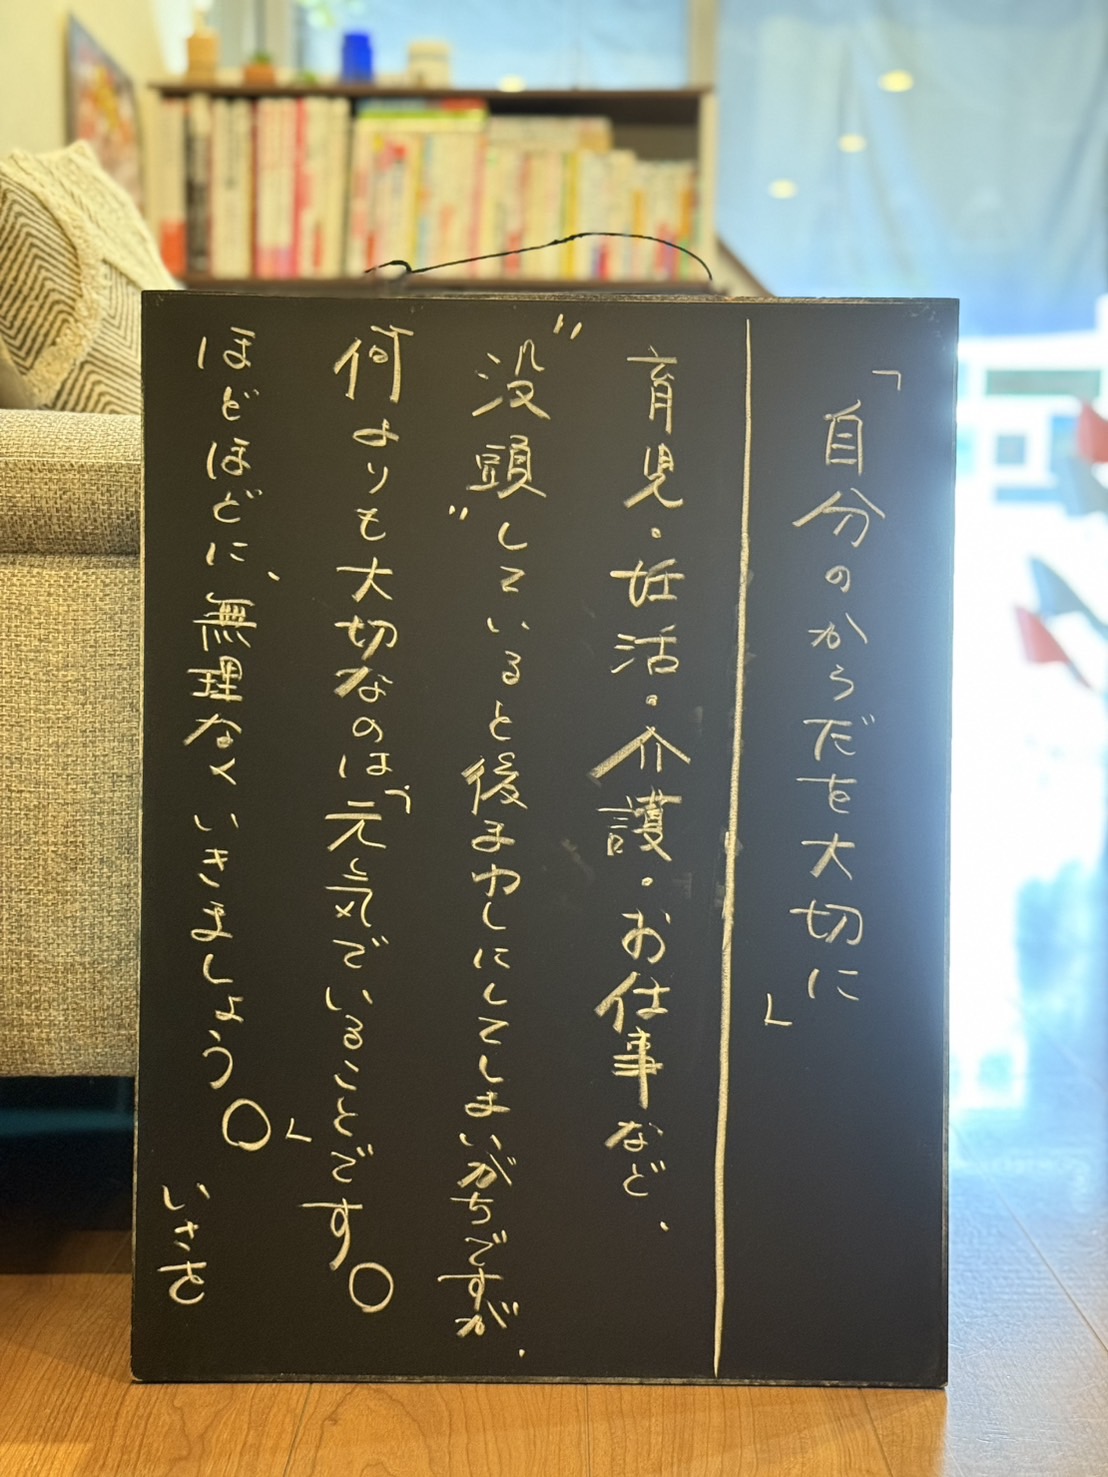 「自分のからだを大切に」
育児・妊活・介護・お仕事など、
"没頭"していると後まわしにしてしまいがちですが、
何よりも大切なのは「元気でいることです。
ほどほどに、無理なくいきましょう。」
いさを